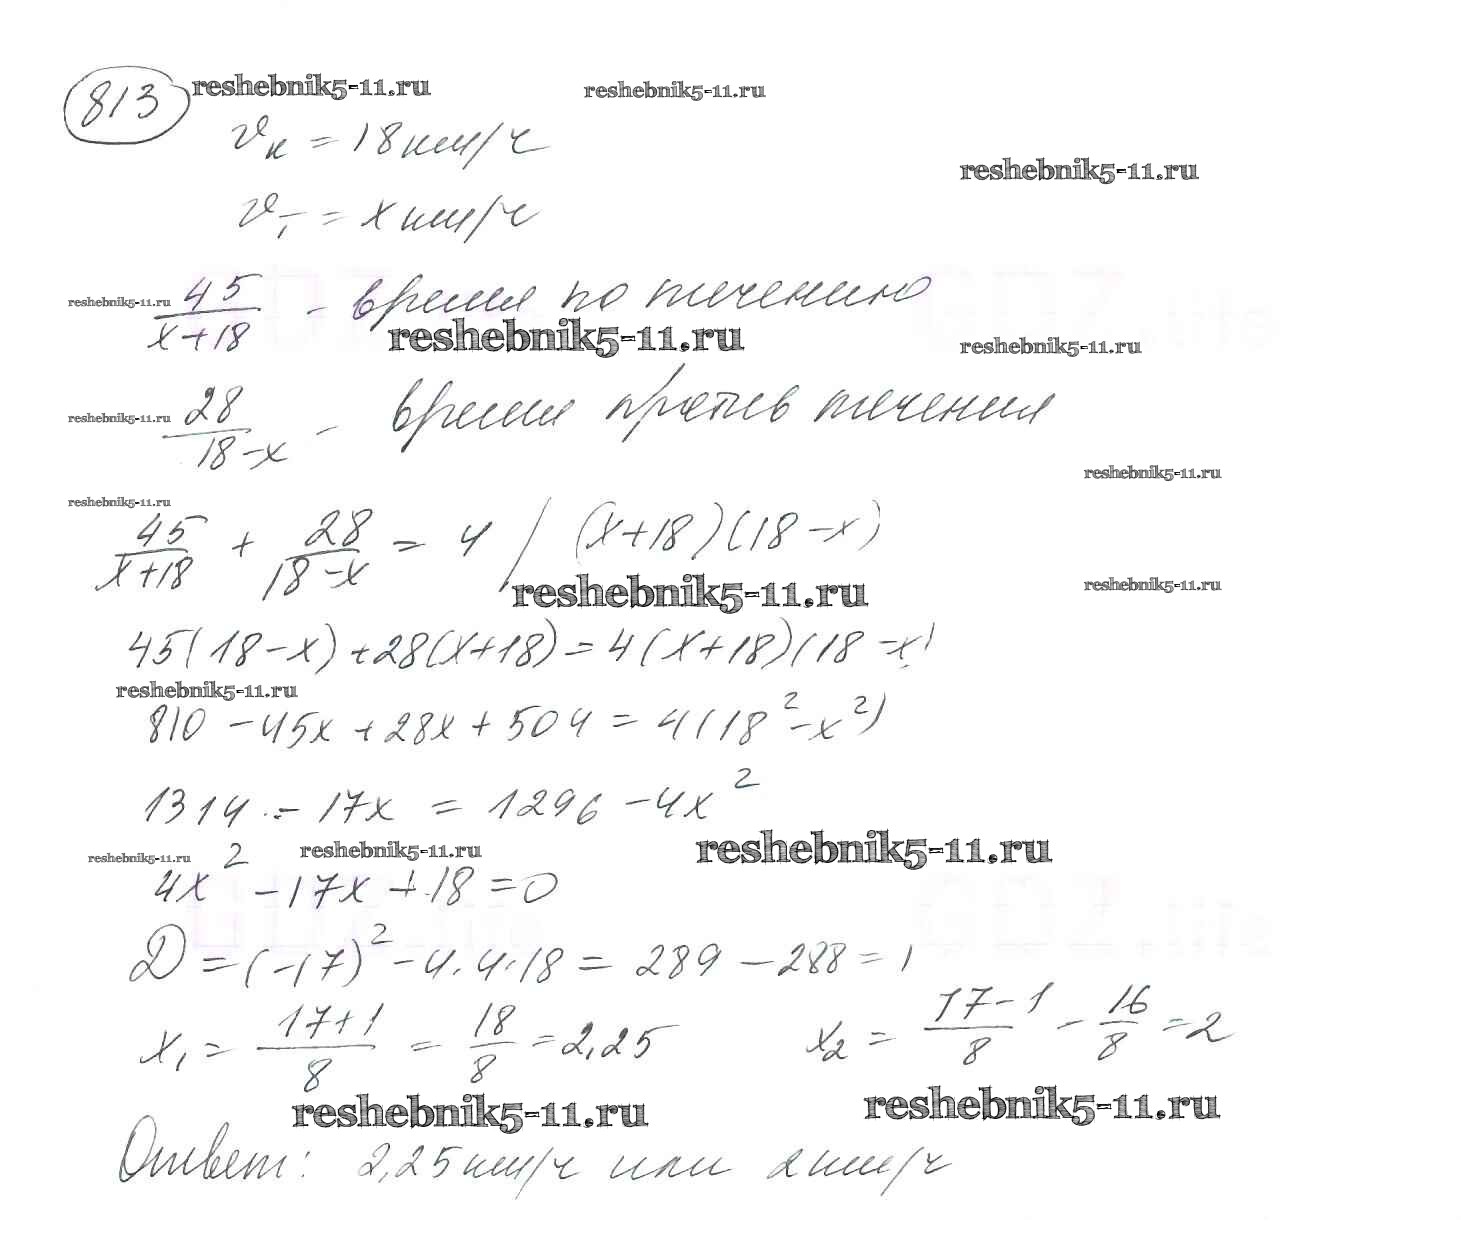 813 reshebnik5-11.ru reshebnik5-11.ru
vк = 18 км/ч
reshebnik5-11.ru
vт = x км/ч
reshebnik5-11.ru 45/(x+18) - время по течению
reshebnik5-11.ru reshebnik5-11.ru
reshebnik5-11.ru 28/(18-x) - время против течения
reshebnik5-11.ru
reshebnik5-11.ru
45/(x+18) + 28/(18-x) = 4 / (x+18)(18-x)
reshebnik5-11.ru reshebnik5-11.ru
45(18-x)+28(x+18)=4(x+18)(18-x)
reshebnik5-11.ru
810-45x+28x+504=4(18²-x²)
1314-17x = 1296-4x²
reshebnik5-11.ru reshebnik5-11.ru reshebnik5-11.ru
4x²-17x+18=0
D=(-17)²-4·4·18=289-288=1
x₁= (17+1)/8 = 18/8 =2,25 x₂= (17-1)/8 - 16/8 =2
reshebnik5-11.ru reshebnik5-11.ru
Ответ: 2,25 км/ч или 2 км/ч